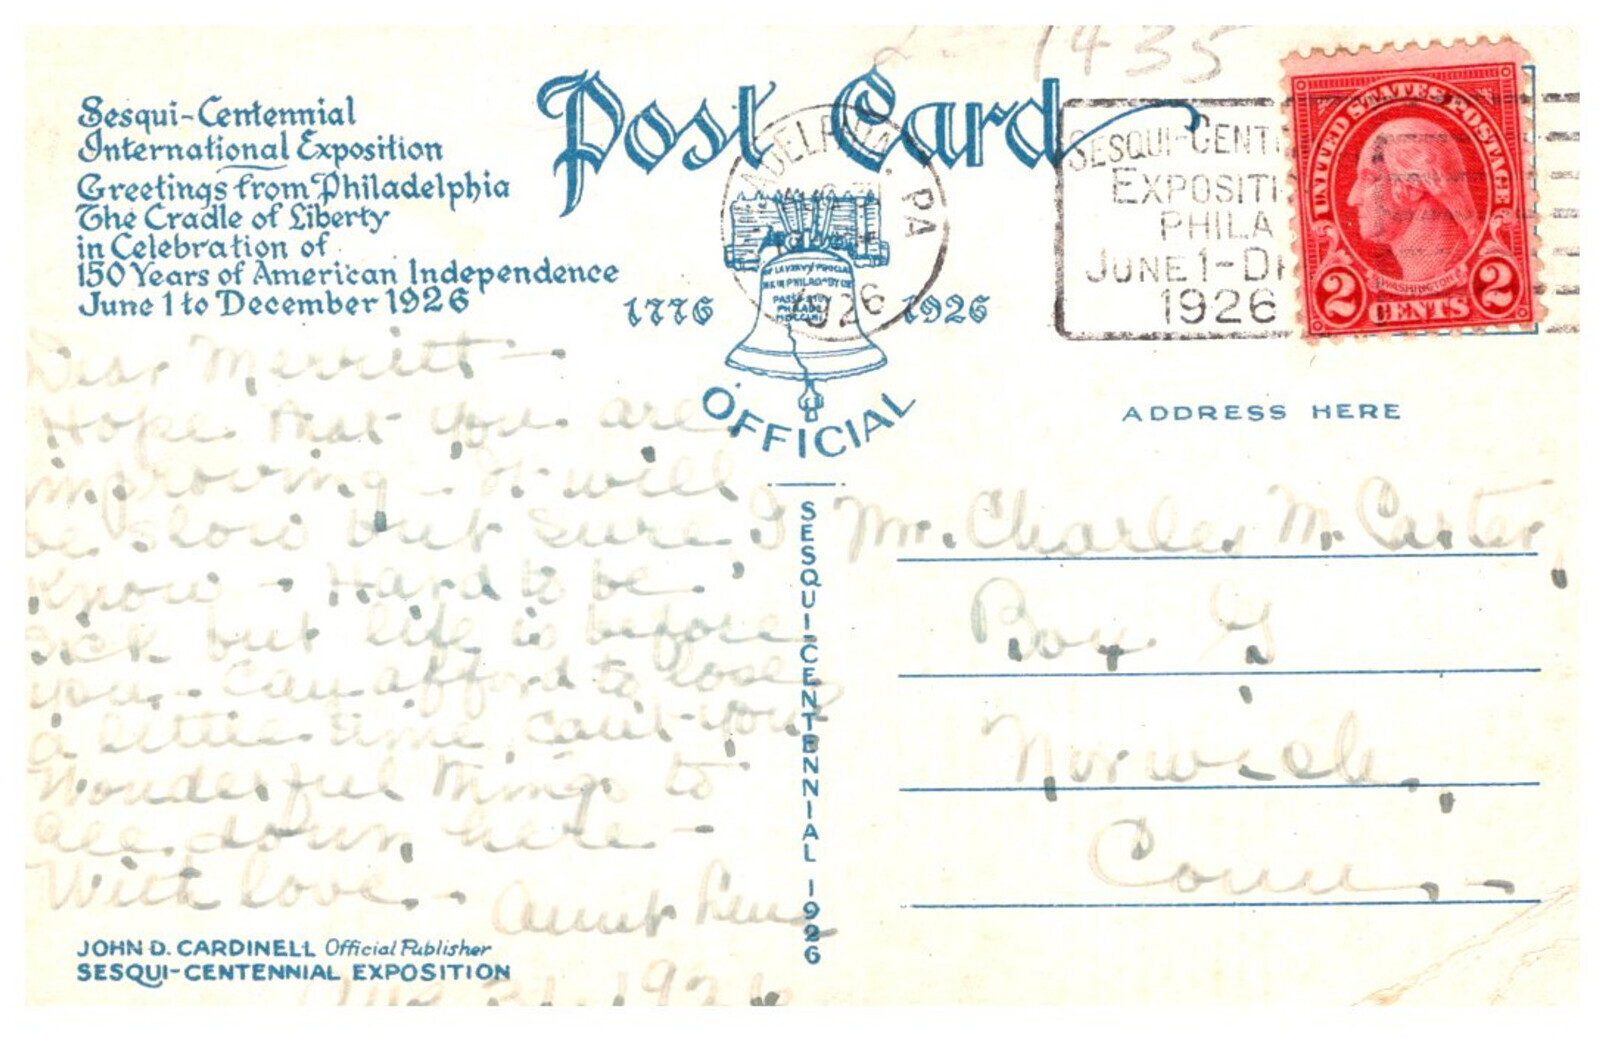 1435
Sesqui-Centennial
International Exposition
Greetings from Philadelphia
The Cradle of Liberty
in Celebration of
150 Years of American Independence
June 1 to December 1926
Post Card
PA
1926
1776 1926
OFFICIAL
SESQUI-CENT
EXPOSITI
PHILA
JUNE 1-D
1926
UNITED STATES POSTAGE
WASHINGTON
2 CENTS 2
Dear Merritt -
Hope that you are
improving - It will
be slow but sure, I
know - Hard to be
sick but life is before
you - Can afford to lose
a little time, can't you?
Wonderful things to
see down here -
With love - Aunt
1926
JOHN D. CARDINELL Official Publisher
SESQUI-CENTENNIAL EXPOSITION
SESQUI-CENTENNIAL 1926
ADDRESS HERE
Mr. Charles M. Carter,
Box G
Norwich,
Conn. -